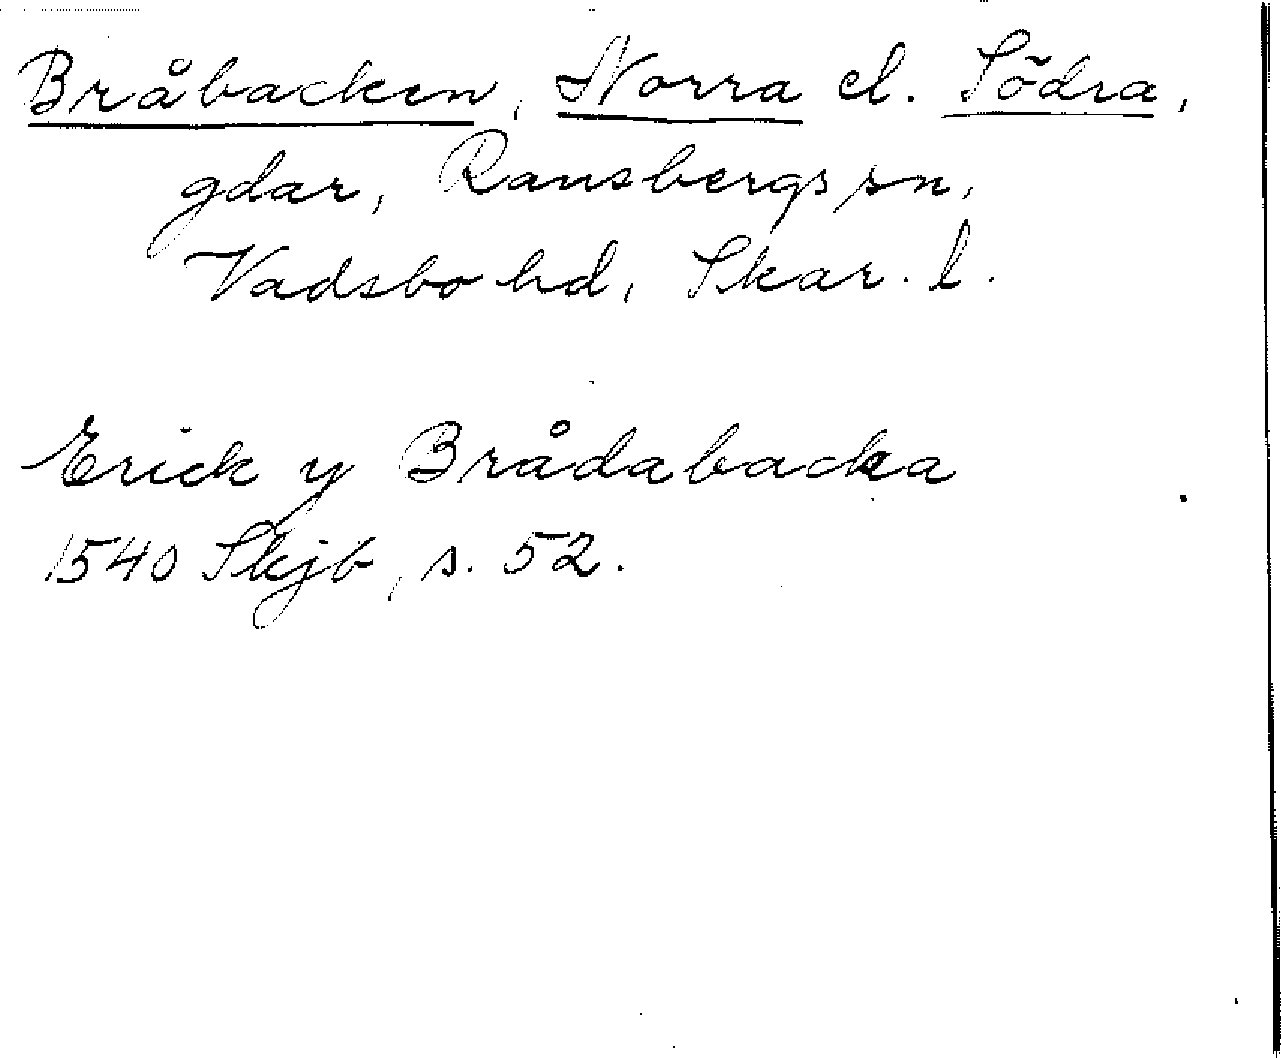 Bråbacken, Norra el. Södra,
gdar, Ransbergs sn,
Vadsbo hd, Skar. l.
Erick y Brådabacka
1540 Skjb, s. 52.